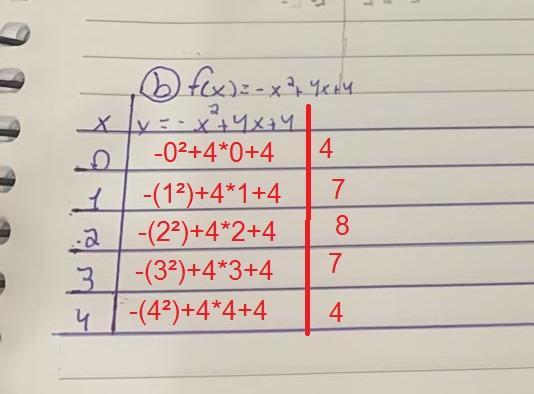 b f(x)=-x²+4x+4
x y=-x²+4x+4
0 -0²+4*0+4 4
1 -(1²)+4*1+4 7
2 -(2²)+4*2+4 8
3 -(3²)+4*3+4 7
4 -(4²)+4*4+4 4